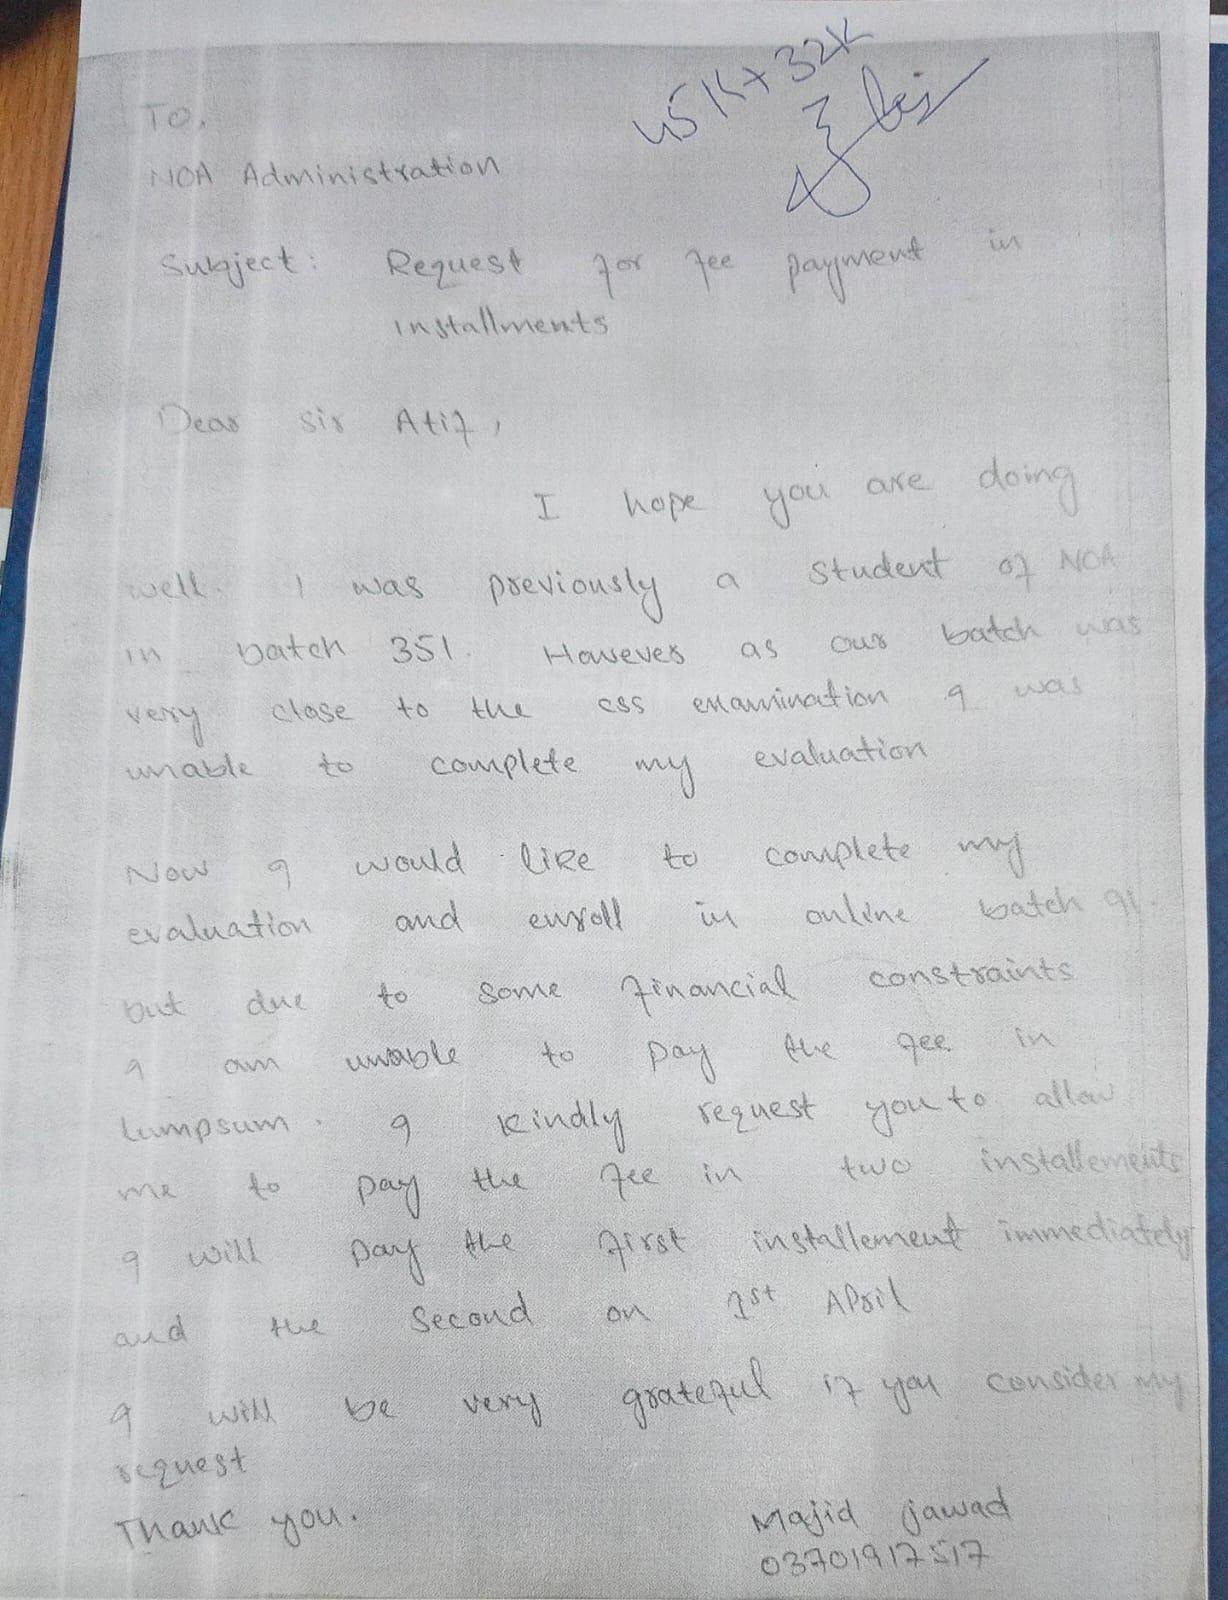 45K+32K
To,
NOA Administration
Subject: Request for fee payment in
installments
Dear Sir Atif,
I hope you are doing
well. I was previously a student of NOA
in batch 351. However as our batch was
very close to the css examination I was
unable to complete my evaluation
Now I would like to complete my
evaluation and enroll in online batch 91.
but due to some financial constraints
I am unable to pay the fee in
lumpsum. I kindly request you to allow
me to pay the fee in two installements
I will pay the first installement immediately
and the second on 1st April
I will be very grateful if you consider my
request
Thank you.
Majid Jawad
03701917517